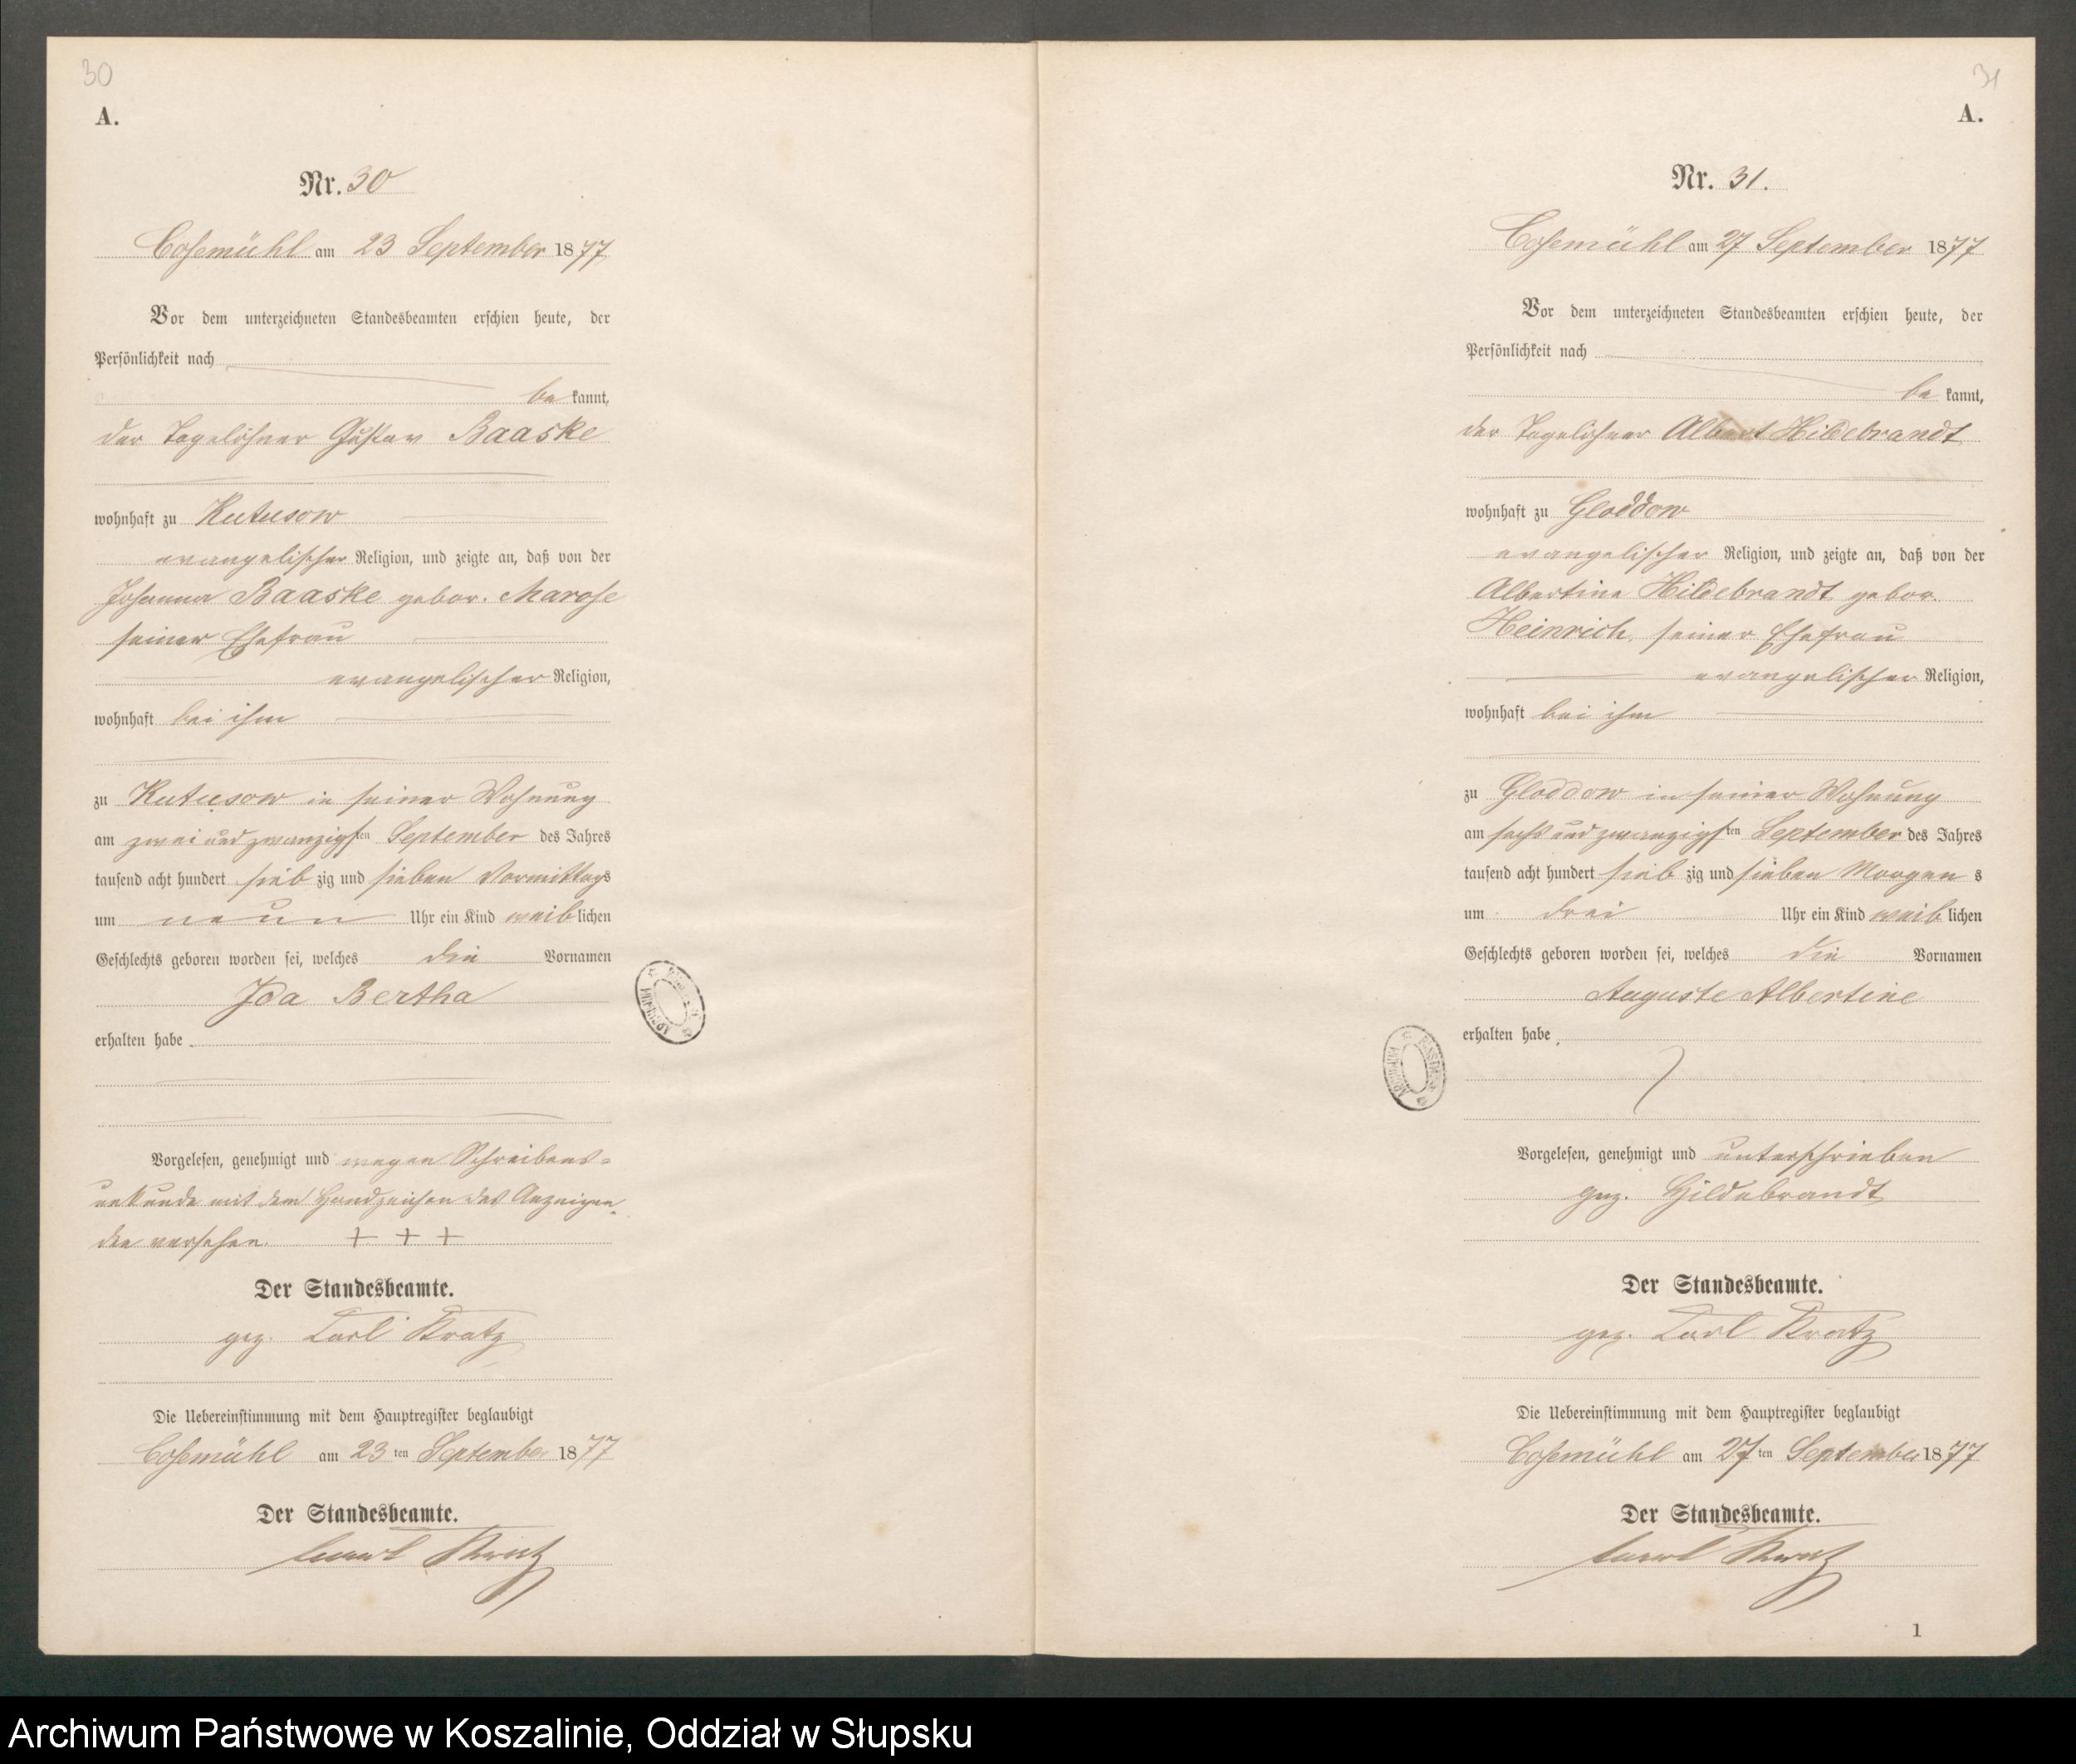 30
A.
Nr. 30
Cosemühl am 23 September 1877
Vor dem unterzeichneten Standesbeamten erschien heute, der
Persönlichkeit nach
be kannt,
der Tagelöhner Gustav Baaske
wohnhaft zu Kutusow
evangelischer Religion, und zeigte an, daß von der
Johanna Baaske gebor. Marose
seiner Ehefrau
evangelischer Religion,
wohnhaft bei ihm
zu Kutusow in seiner Wohnung
am zwei und zwanzigsten September des Jahres
tausend acht hundert sieb zig und sieben Vormittags
um neun Uhr ein Kind weiblichen
Geschlechts geboren worden sei, welches die Vornamen
Ida Bertha
erhalten habe.
Vorgelesen, genehmigt und wegen Schreibens-
unkunde mit dem Handzeichen des Anzeigen-
den versehen. + + +
Der Standesbeamte.
gez. Carl Kratz
Die Uebereinstimmung mit dem Hauptregister beglaubigt
Cosemühl am 23 ten September 1877
Der Standesbeamte.
Carl Kratz
31
A.
Nr. 31.
Cosemühl am 27 September 1877
Vor dem unterzeichneten Standesbeamten erschien heute, der
Persönlichkeit nach
be kannt,
der Tagelöhner Albert Hildebrandt
wohnhaft zu Gloddow
evangelischer Religion, und zeigte an, daß von der
Albertine Hildebrandt gebor.
Heinrich, seiner Ehefrau
evangelischer Religion,
wohnhaft bei ihm
zu Gloddow in seiner Wohnung
am sechs und zwanzigsten September des Jahres
tausend acht hundert sieb zig und sieben Morgen s
um drei Uhr ein Kind weib lichen
Geschlechts geboren worden sei, welches die Vornamen
Auguste Albertine
erhalten habe.
Vorgelesen, genehmigt und unterschrieben
gez. Hildebrandt
Der Standesbeamte.
gez. Carl Kratz
Die Uebereinstimmung mit dem Hauptregister beglaubigt
Cosemühl am 27 ten September 1877
Der Standesbeamte.
Carl Kratz
1
Archiwum Państwowe w Koszalinie, Oddział w Słupsku